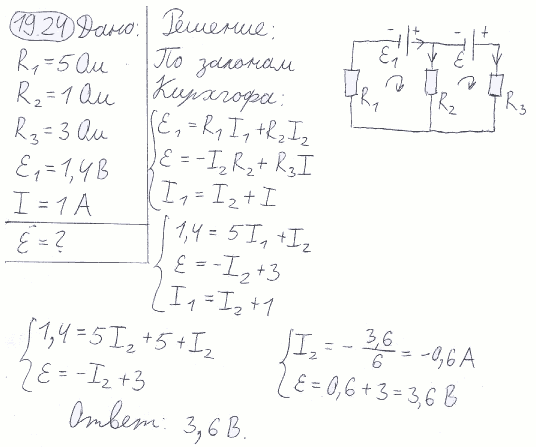 19.24 Дано:
R₁=5 Ом
R₂=1 Ом
R₃=3 Ом
Ɛ₁=1,4 В
I=1 А
Ɛ=?
Решение:
По законам
Кирхгофа:
Ɛ₁=R₁I₁+R₂I₂
Ɛ=-I₂R₂+R₃I
I₁=I₂+I
1,4=5I₁+I₂
Ɛ=-I₂+3
I₁=I₂+1
- + - +
Ɛ₁ Ɛ
R₁ R₂ R₃
1,4=5I₂+5+I₂
Ɛ=-I₂+3
I₂=-3,6/6=-0,6 А
Ɛ=0,6+3=3,6 В
Ответ: 3,6 В.